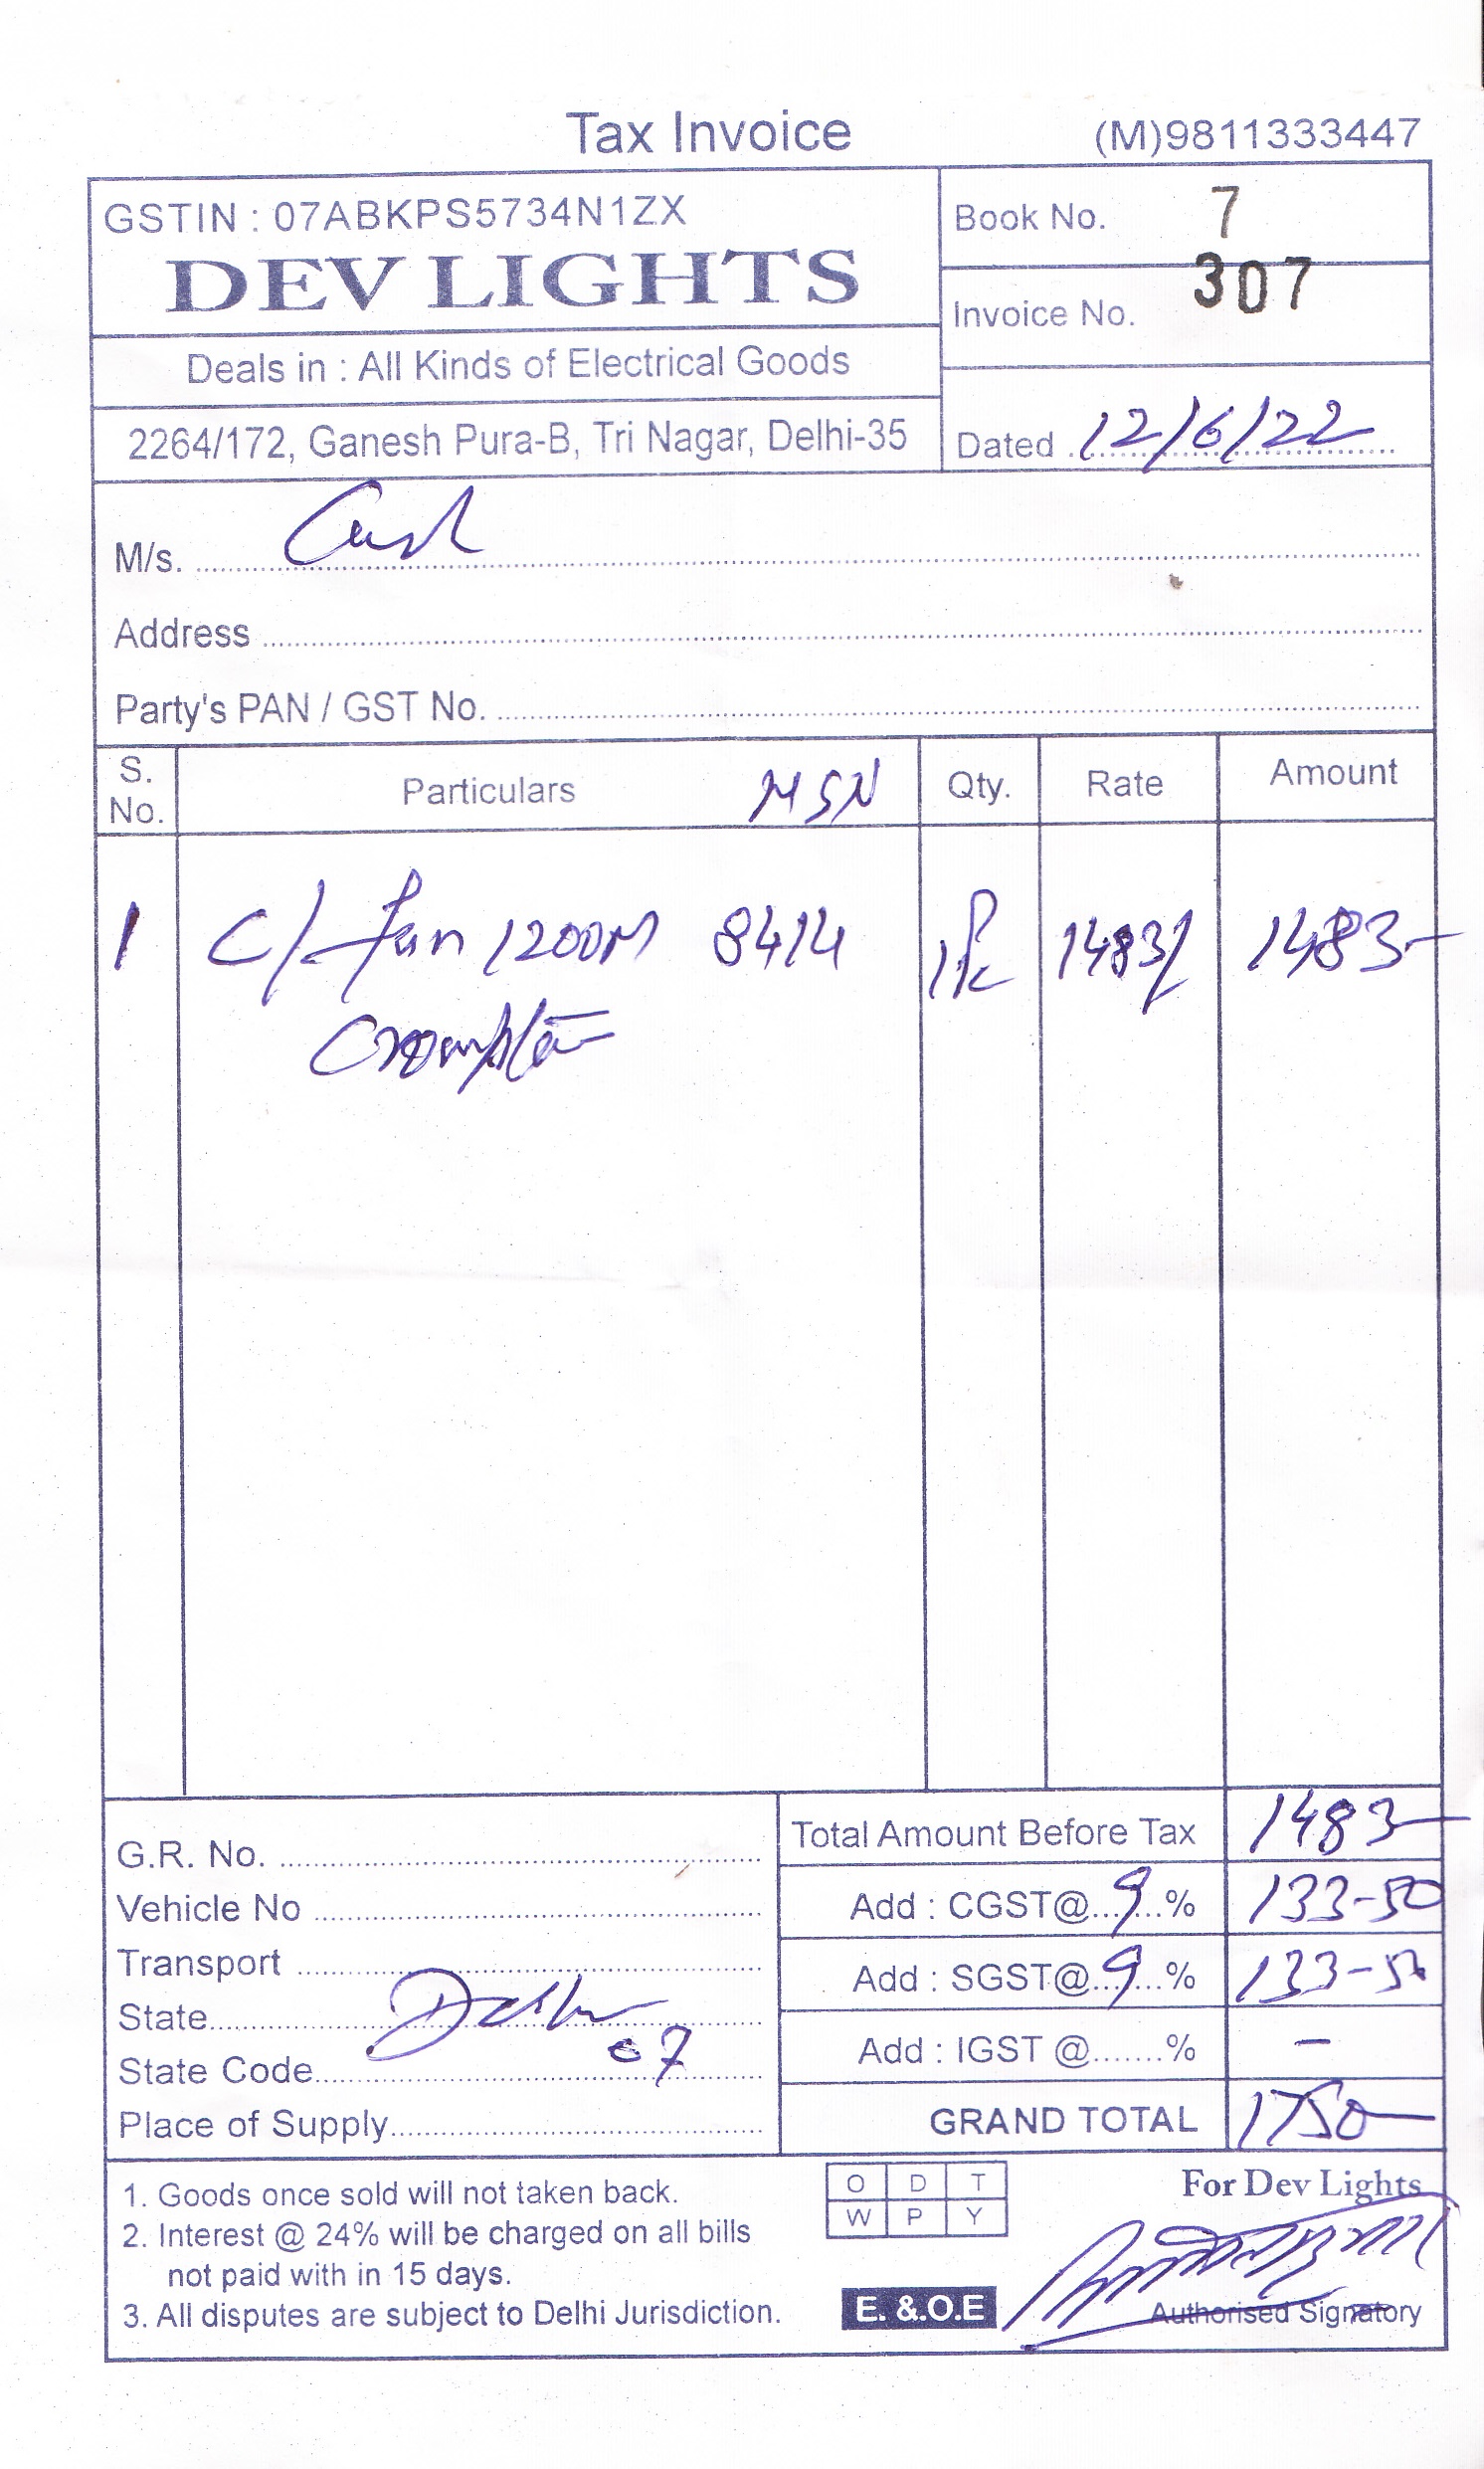 Tax Invoice (M)9811333447
GSTIN : 07ABKPS5734N1ZX
DEV LIGHTS
Deals in : All Kinds of Electrical Goods
2264/172, Ganesh Pura-B, Tri Nagar, Delhi-35
Book No. 7
Invoice No. 307
Dated 12/6/22
M/s. Cash
Address
Party's PAN / GST No.
S. No. Particulars HSN Qty. Rate Amount
1 C/Fan 1200M 8414 1Pc 1483/ 1483-
Crompton
G.R. No.
Vehicle No
Transport
State Delhi
State Code 07
Place of Supply
Total Amount Before Tax 1483-
Add : CGST@ 9 % 133-50
Add : SGST@ 9 % 133-50
Add : IGST @ % -
GRAND TOTAL 1750-
1. Goods once sold will not taken back.
2. Interest @ 24% will be charged on all bills
not paid with in 15 days.
3. All disputes are subject to Delhi Jurisdiction.
O D T
W P Y
E. &.O.E
For Dev Lights
Authorised Signatory